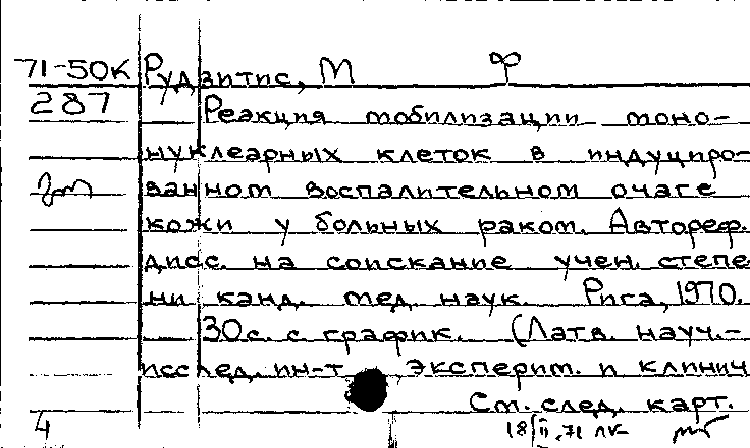 71-50к Рудзитис, М
287 Реакция мобилизации моно-
нуклеарных клеток в индуциро-
ванном воспалительном очаге
кожи у больных раком. Автореф.
дисс. на соискание учен. степе
ни канд. мед. наук. Рига, 1970.
30с. с график. (Латв. науч.-
исслед. ин-т эксперим. и клинич
См. след. карт.
4 18/II.71 ЛК